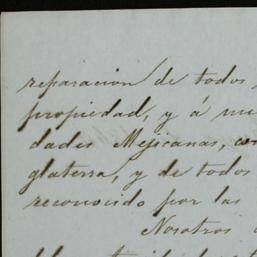 reparacion de todos
propiedad, y á
dades Mejicanas,
glaterra, y de todos
reconocido por las
Nosotros